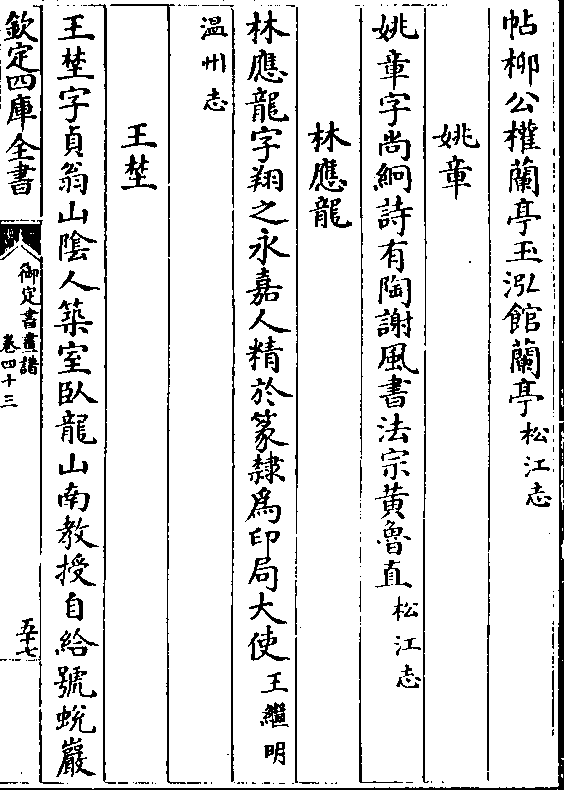 帖柳公權蘭亭玉泓館蘭亭松江志
姚章
姚章字尚絅詩有陶謝風書法宗黄魯直松江志
林應龍
林應龍字翔之永嘉人精於篆隸爲印局大使王繼明
温州志
王埜
王埜字貞翁山隂人築室臥龍山南教授自給號蛻巖
欽定四庫全書
御定書畫譜
卷四十三
五十七